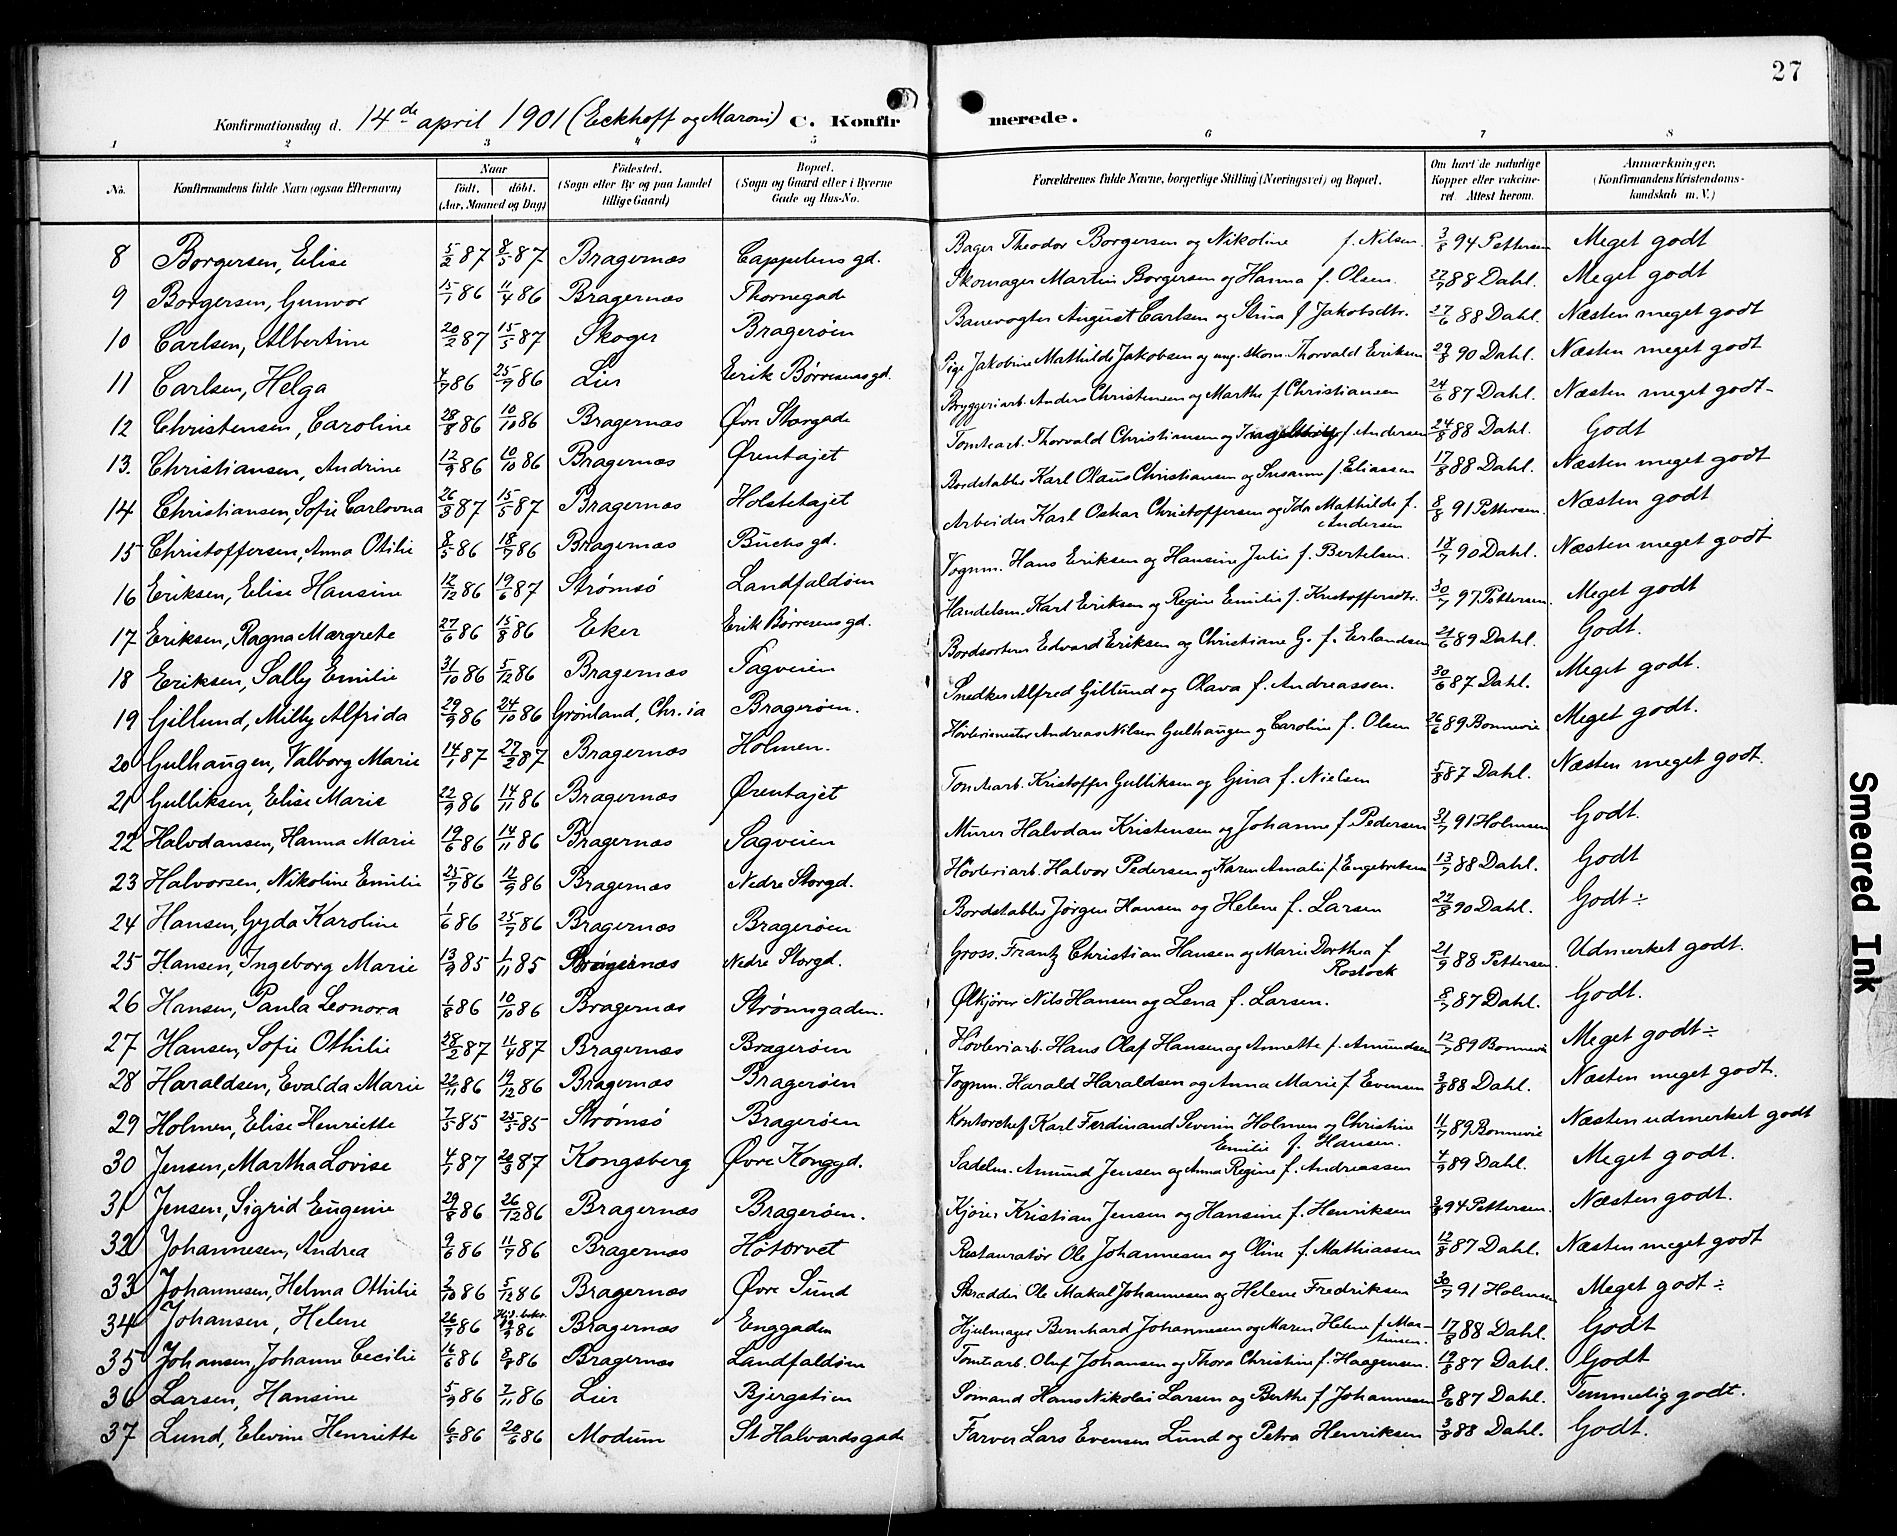 27
Konfirmationsdag d. 14de april 1901 (Eckhoff og Maroni) C. Konfirmerede.
1 2 3 4 5 6 7 8
No. Konfirmandens fulde Navn (ogsaa Efternavn) Naar født, døbt. (Aar, Maaned og Dag) Fødested. (Sogn eller By og paa Landet tillige Gaard) Bopæl. (Sogn og Gaard eller i Byerne Gade og Hus-No. Forældrenes fulde Navne, borgerlige Stilling (Næringsvei) og Bopæl. Om havt de naturlige Kopper eller vaccineret. Attest herom. Anmærkninger. (Konfirmandens Kristendomskundskab m. V.)
8 Borgersen, Elise 5/2 87 8/5 87 Bragernæs Cappelens gd. Bager Theodor Borgersen og Nikoline f. Nilsen 3/8 94 Pettersen Meget godt
9 Borgersen, Gunvor 15/1 86 11/4 86 Bragernæs Thornegade Skomager Martin Borgersen og Hanna f. Olsen. 22/7 88 Dahl. Meget godt
10 Carlsen, Albertine 20/2 87 15/5 87 Skoger Bragerøen Banevogter August Carlsen og Stina f Jakobsdtr. 27/6 88 Dahl. Næsten meget godt
11 Carlsen, Helga 4/7 86 25/7 86 Lier Erik Børresens gd. Pige Jakobine Mathilde Jakobsen og ung. skom. Thorvald Eriksen 29/8 90 Dahl. Næsten meget godt
12 Christensen, Caroline 28/8 86 10/10 86 Bragernæs Øvre Storgade Bryggeriarb. Anders Christensen og Marthe f Christiansen 24/6 87 Dahl. Næsten meget godt-
13. Christiansen, Andrine 12/9 86 10/10 86 Bragernæs Ørentajet Tomtearb. Thorvald Christiansen og f. Andersen 24/8 88 Dahl. Godt
14 Christiansen, Sofie Carlovna 26/3 87 15/5 87 Bragernæs Holstetajet Bordstabler Karl Olaus Christiansen og Susanne f. Eliassen 17/8 88 Dahl. Næsten meget godt
15 Christoffersen, Anna Otilie 8/5 86 18/7 86 Bragernæs Buchs gd. Arbeider Karl Oskar Christoffersen og Ida Mathilde f. Andersen 8/8 91 Pettersen. Næsten godt
16 Eriksen, Elise Hansine 12/12 86 19/6 87 Strømsø Landfaldøen Vognm. Hans Eriksen og Hansine Julie f. Bertelsen. 18/7 90 Dahl. Næsten meget godt
17 Eriksen, Ragna Margrete 27/6 86 15/8 86 Eker Erik Børresens gd. Handelsm. Karl Eriksen og Regine Emilie f. Kristoffersdtr. 30/7 97 Pettersen. Meget godt
18 Eriksen, Sally Emilie 31/10 86 5/12 86 Bragernæs Sagveien Bordsorterer Edvard Eriksen og Christiane G. f. Erlandsen 21/6 89 Dahl. Godt.
19 Gillund, Milly Alfrida 29/9 86 24/10 86 Grønland, Chr.ia Bragerøen. Snedker Alfred Gillund og Olava f. Andreassen. 30/6 87 Dahl. Meget godt.
20 Gulhaugen, Valborg Marie 14/1 87 27/2 87 Bragernæs Holmen. Høvlerimester Andreas Nilsen Gulhaugen og Caroline f. Olsen 26/6 89 Bonnevie Meget godt.
21 Gulliksen, Elise Marie 22/9 86 14/11 86 Bragernæs Ørentajet Tomtearb. Kristoffer Gulliksen og Gina f. Nielsen 5/8 87 Dahl. Næsten meget godt.
22 Halvdansen, Hanna Marie 19/6 86 14/11 86 Bragernæs Sagveien Murer Halvdan Kristensen og Johanne f. Pedersen 31/7 91 Holmsen Godt.
23 Halvorsen, Nikoline Emilie 25/7 86 12/9 86 Bragernæs Nedre Storgd. Høvleriarb. Halvor Pedersen og Karen Amalie f. Engebretsen 13/7 88 Dahl. Godt
24 Hansen, Gyda Karoline 1/6 86 25/7 86 Bragernæs Bragerøen Bordstabler Jørgen Hansen og Helene f. Larsen 22/8 90 Dahl. Godt÷
25 Hansen, Ingeborg Marie 13/9 85 1/11 85 Bragernæs Nedre Storgd. Gross. Frantz Christian Hansen og Marie Dorthea f Rostock 21/9 88 Pettersen. Udmerket godt.
26 Hansen, Paula Leonora 1/8 86 10/10 86 Bragernæs Strømsgaden. Ølkjører Nils Hansen og Lena f. Larsen. 8/7 87 Dahl. Godt.
27 Hansen, Sofie Othilie 28/2 87 11/4 87 Bragernæs Bragerøen Høvleriarb. Hans Olaf Hansen og Annette f. Amundsen 12/7 89 Bonnevie Meget godt÷
28 Haraldsen, Evalda Marie 22/11 86 19/12 86 Bragernæs Bragerøen Vognm. Harald Haraldsen og Anna Marie f Evensen 3/8 88 Dahl. Næsten meget godt.
29 Holmen, Elise Henriette 7/5 85 25/5 85 Strømsø Bragerøen Kontorchef Karl Ferdinand Severin Holmen og Christine Emilie f. Hansen. 11/7 89 Bonnevie Næsten udmerket godt
30 Jensen, Martha Lovise 4/1 87 20/3 87 Kongsberg Øvre Konggd. Sadelm. Amund Jensen og Anna Regine f. Andreassen 4/9 89 Dahl. Meget godt.
31 Jensen, Sigrid Eugenie 29/8 86 26/12 86 Bragernæs Bragerøen. Kjører Kristian Jensen og Hansine f. Henriksen 3/8 94 Pettersen. Næsten godt.
32 Johannesen, Andrea 9/6 86 11/7 86 Bragernæs Høtorvet Restauratør Ole Johannesen og Oline f. Mathiassen 12/8 87 Dahl. Næsten meget godt
33 Johannesen, Helma Othilie 2/10 86 5/12 86 Bragernæs Øvre Sund Skrædder Ole Makal Johannesen og Helene Fredriksen 30/7 91 Holmsen Meget godt÷
34 Johansen, Helene 26/7 86 19/9 86 Bragernæs Enggaden Hjulmager Bernhard Johannesen og Maren Helene f Martinsen. 17/8 88 Dahl. Godt
35 Johansen, Johanne Cecilie 16/6 86 8/8 86 Bragernæs Landfaldøen Tomtearb. Oluf Johansen og Thora Christine f. Haagensen. 19/8 87 Dahl. Godt
36 Larsen, Hansine 5/9 86 7/11 86 Lier Bjergstien Sømand Hans Nikolai Larsen og Berthe f Johannesen 8/6 87 Dahl. Temmelig godt.
37 Lund, Elevine Henriette 6/5 86 20/6 86 Modum St Halvards gade Farver Lars Evensen Lund og Petra Henriksen 3/8 88 Dahl. Godt.
Smeared Ink